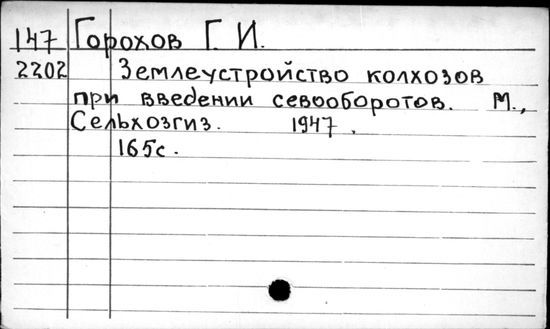 147 Горохов Г. И.
2202 Землеустройство колхозов
при введении севооборотов. М.,
Сельхозгиз. 1947.
165с.